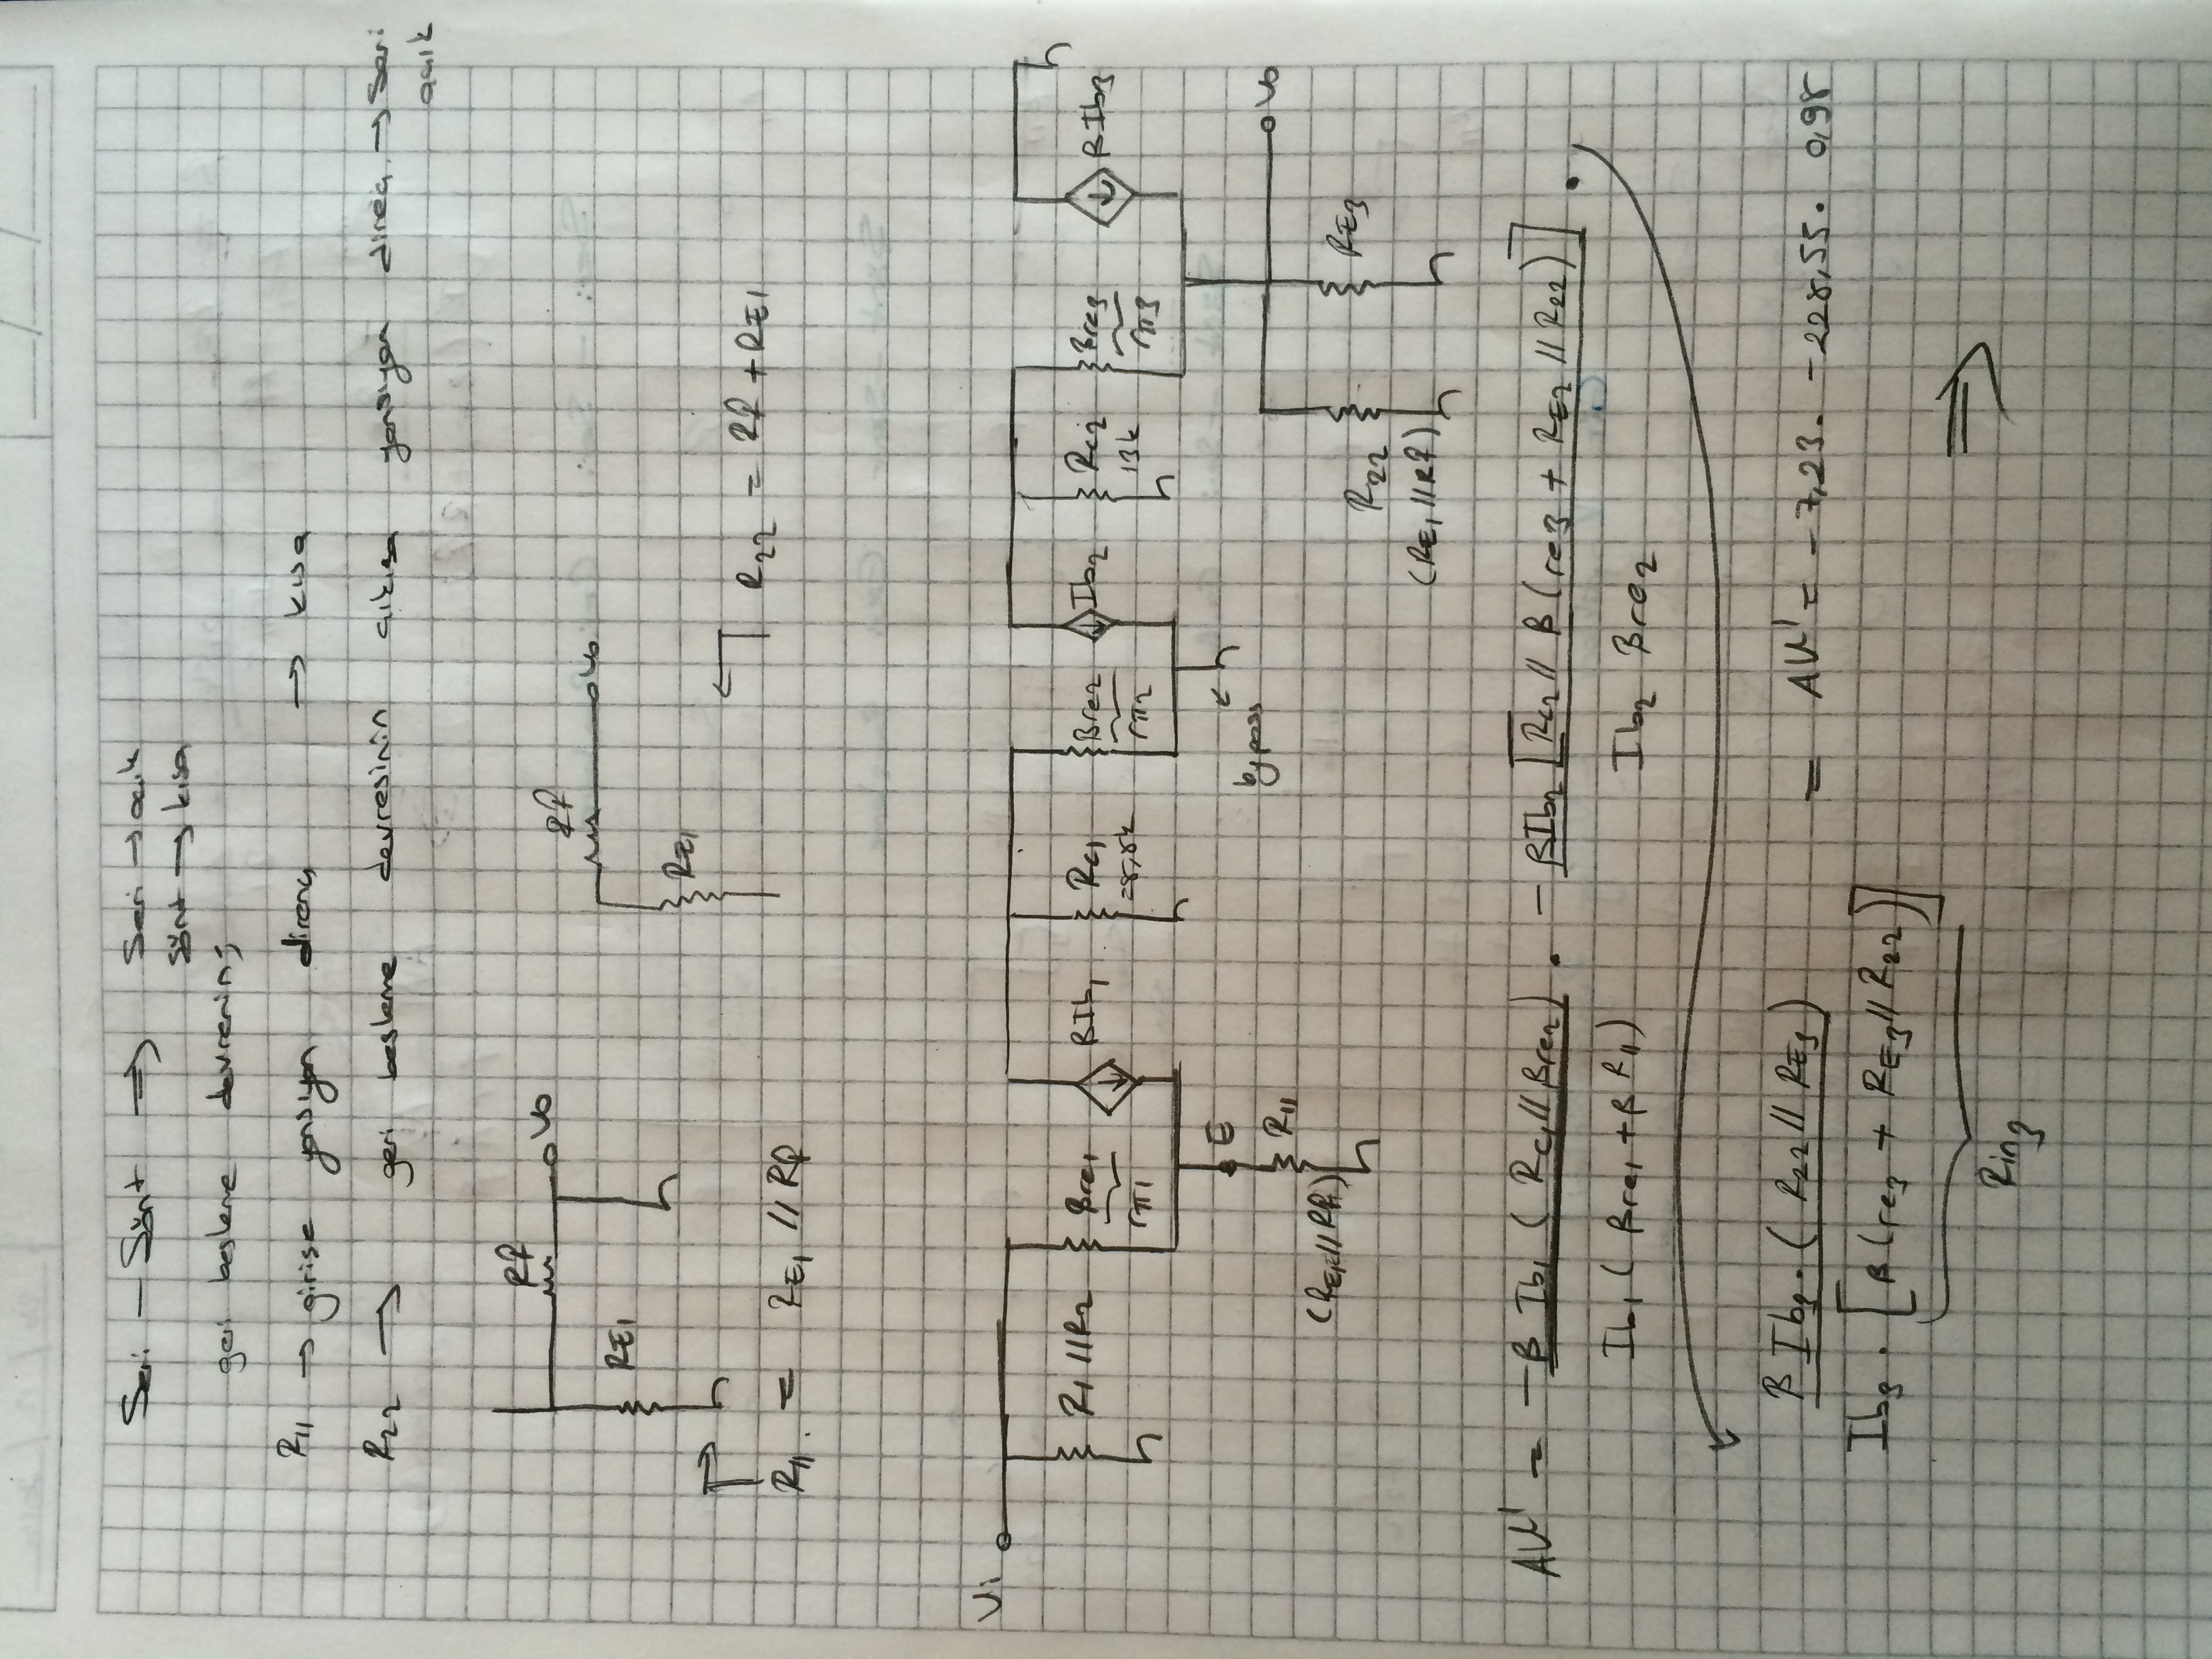 Seri – Şönt ⇒ Seri → açık
Şönt → kısa
geri besleme devrenin;
R11 → girişe yansıyan direnç → kısa
R22 → geri besleme devresinin çıkışa yansıyan direnç → Seri
açık
Rf
Vo
RE1
R11 = RE1 // Rf
Rf
Vo
RE1
R22 = Rf + RE1
Vi
R1 // R2
Bre1
rπ1
βIb1
Rc1
=8,8k
Bre2
rπ2
Ib2
Rc2
13k
Bre3
rπ3
βIb3
E
bypass
R11
(RE1 // Rf)
Vo
R22
(RE1 // Rf)
RE3
AV' = -β Ib1 ( Rc1 // βre2 ) . -βIb2 [ Rc2 // β ( re3 + RE2 // R22 ) ] .
Ib1 ( βre1 + β R11 )
Ib2 Bre2
β Ib3 . ( R22 // RE3 )
= AV' = -7,23 . -228,55 . 0,98
Ib3 . [ β ( re3 + RE3 // R22 ) ]
Rin3
⇒